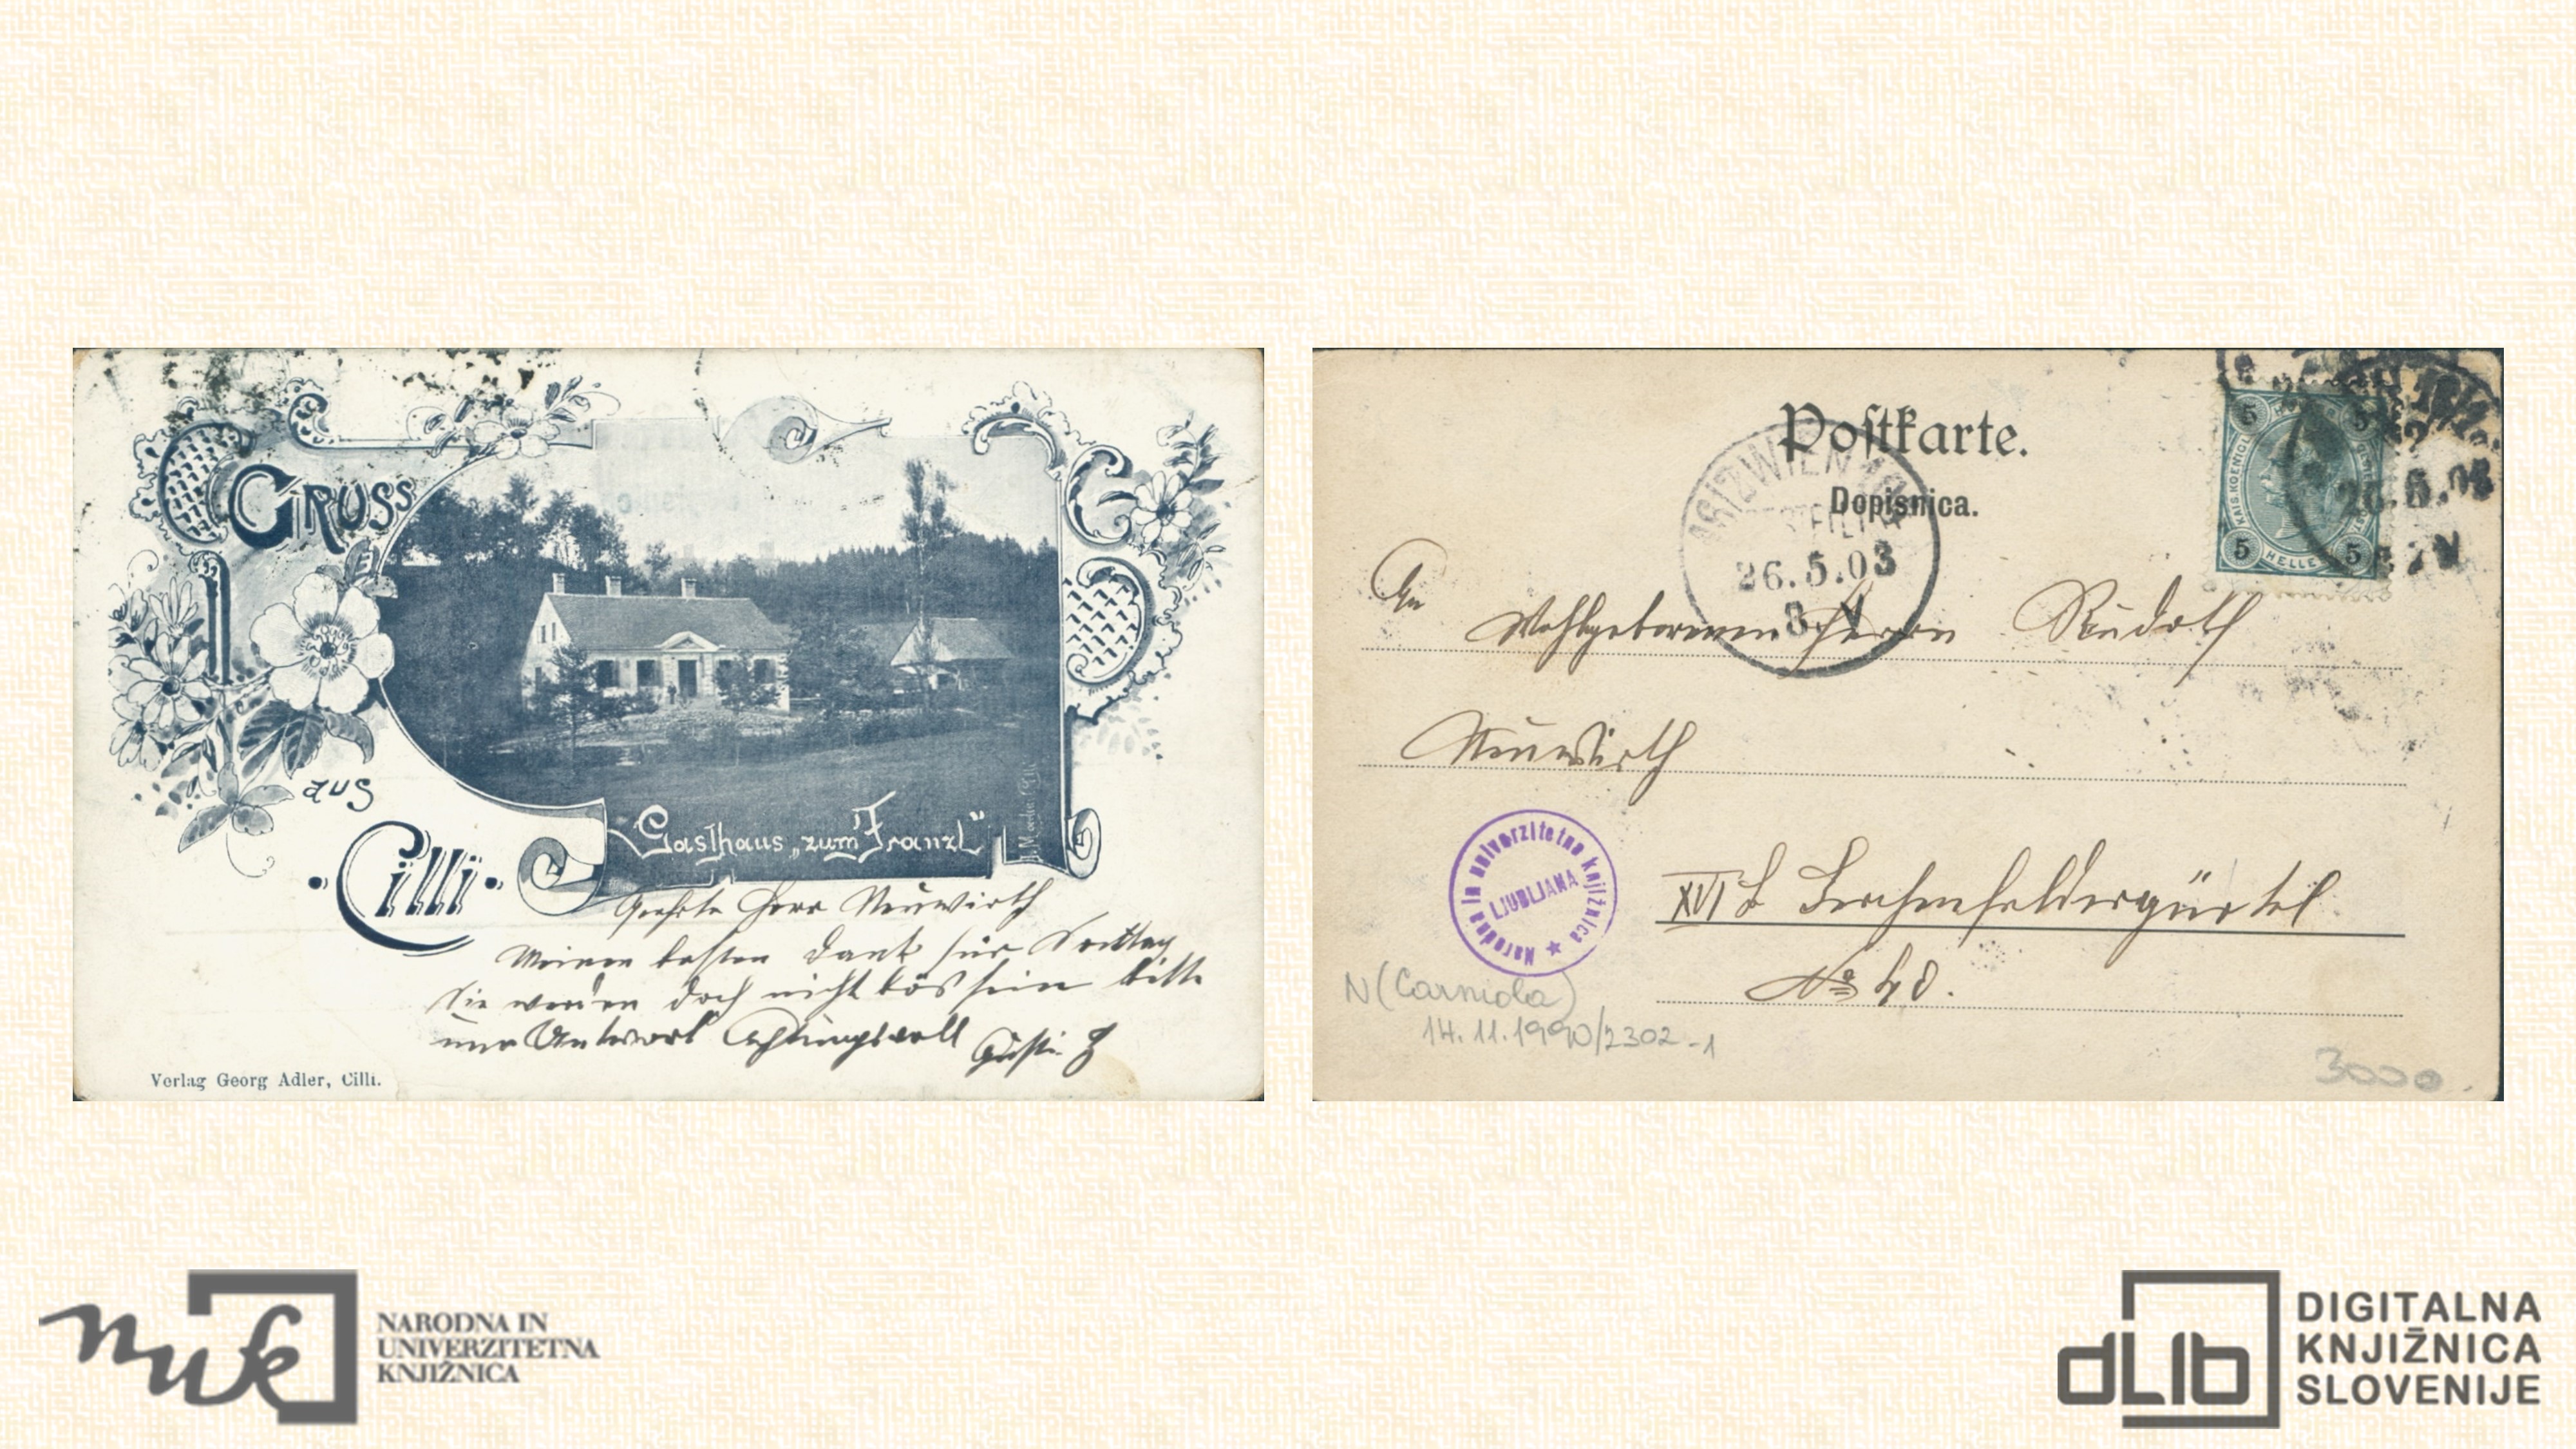 GRUSS
aus
Cilli
Gasthaus „zum Franzl"
Geehrte Herr Neuwirth
Meinen besten Dank für
Sie werden doch nicht bös sein bitte
um Antwort Achtungsvoll Gusti
Verlag Georg Adler, Cilli.
Postkarte.
Dopisnica.
WIEN
26.5.03
8 V
5 5
KAIS. KOENIGL.
5 HELLER 5
26.5.03
An
Wohlgeborenen Herrn Rudolf
Neuwirth
XVI Lerchenfeldergürtel
No 48.
Narodna in univerzitetna knjižnica ★
LJUBLJANA
N (Carniola)
14.11.1990/2302-1
3000
nuk
NARODNA IN
UNIVERZITETNA
KNJIŽNICA
dLib
DIGITALNA
KNJIŽNICA
SLOVENIJE